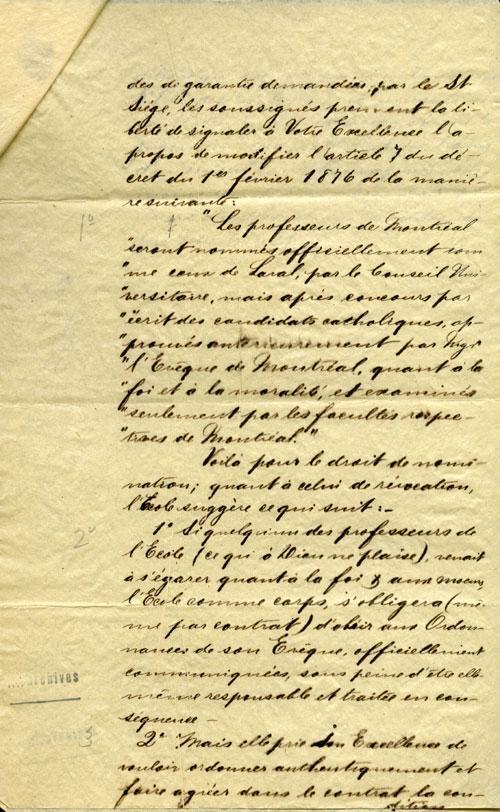 des de garantie demandées, par le St
Siége, les soussignés prennent la li-
berté de signaler à Votre Excellence l'à
propos de modifier l'article 7 du dé-
cret du 1er février 1876 de la maniè-
re suivante:
1º "Les professeurs de Montréal
"seront nommés officiellement com
"me ceux de Laval, par le Conseil Uni
"versitaire, mais après concours par
"écrit des candidats catholiques, ap-
"prouvés antérieurement par Mgr
"l'Evêque de Montréal, quant à la
"foi et à la moralité, et examinés
"seulement par les facultés respec-
"tives de Montréal."
Voilà pour le droit de nomi-
nation; quant à celui de révocation,
l'Ecole suggère ce qui suit:-
2º
1º Si quelqu'un des professeurs de
l'Ecole (ce qu'à Dieu ne plaise), venait
à s'égarer quant à la foi & aux moeurs,
l'Ecole comme corps, s'obligera (mê-
me par contrat) d'obéir aux Ordon-
nances de son Evêque, officiellement
communiquées, sous peine d'être elle
même responsable et traitée en con-
séquence -
archives
3
2º Mais elle prie Son Excellence de
vouloir ordonner authentiquement et
faire agréer dans le contrat la con-
dition